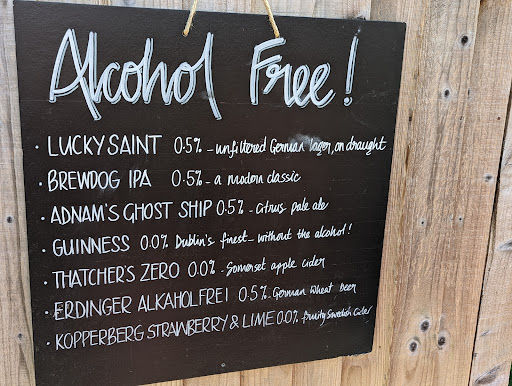 Alcohol Free!
· LUCKY SAINT 0.5% - unfiltered German lager, on draught
· BREWDOG IPA 0.5% - a modern classic
· ADNAM'S GHOST SHIP 0.5% - Citrus pale ale
· GUINNESS 0.0% Dublin's finest - without the alcohol!
· THATCHER'S ZERO 0.0% - Somerset apple cider
· ERDINGER ALKAHOLFREI 0.5% - German Wheat Beer
· KOPPERBERG STRAWBERRY & LIME 0.0% fruity Swedish Cider